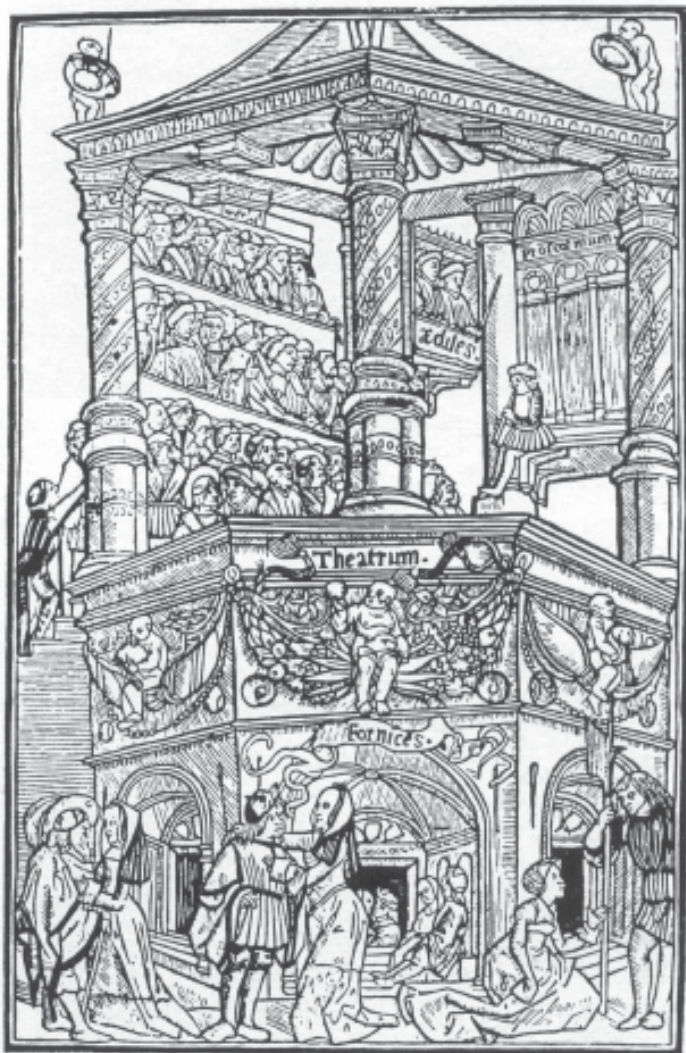 Proscenium.
Ædiles.
Theatrum.
Fornices.